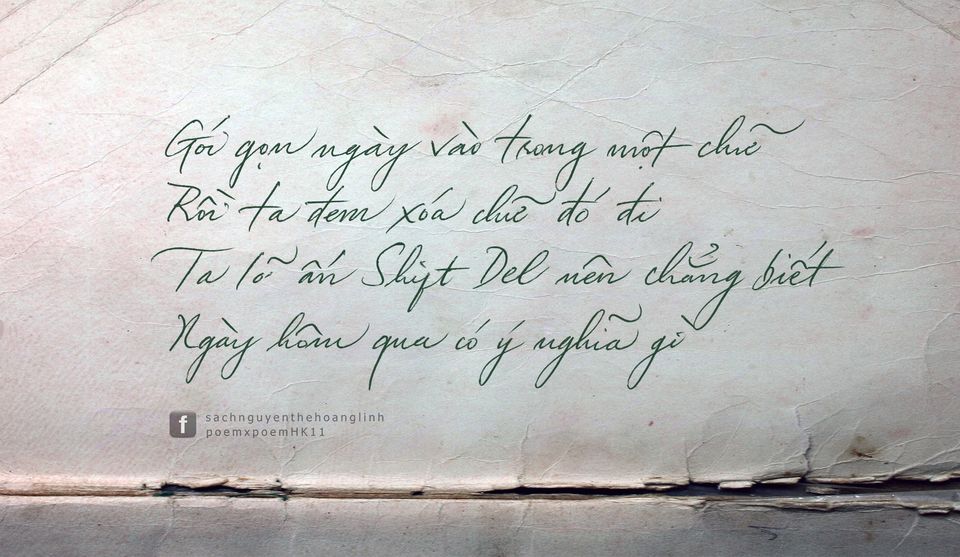 Gói gọn ngày vào trong một chữ
Rồi ta đem xóa chữ đó đi
Ta lỡ ấn Shift Del nên chẳng biết
Ngày hôm qua có ý nghĩa gì
f sachnguyenthehoanglinh
poemxpoemHK11